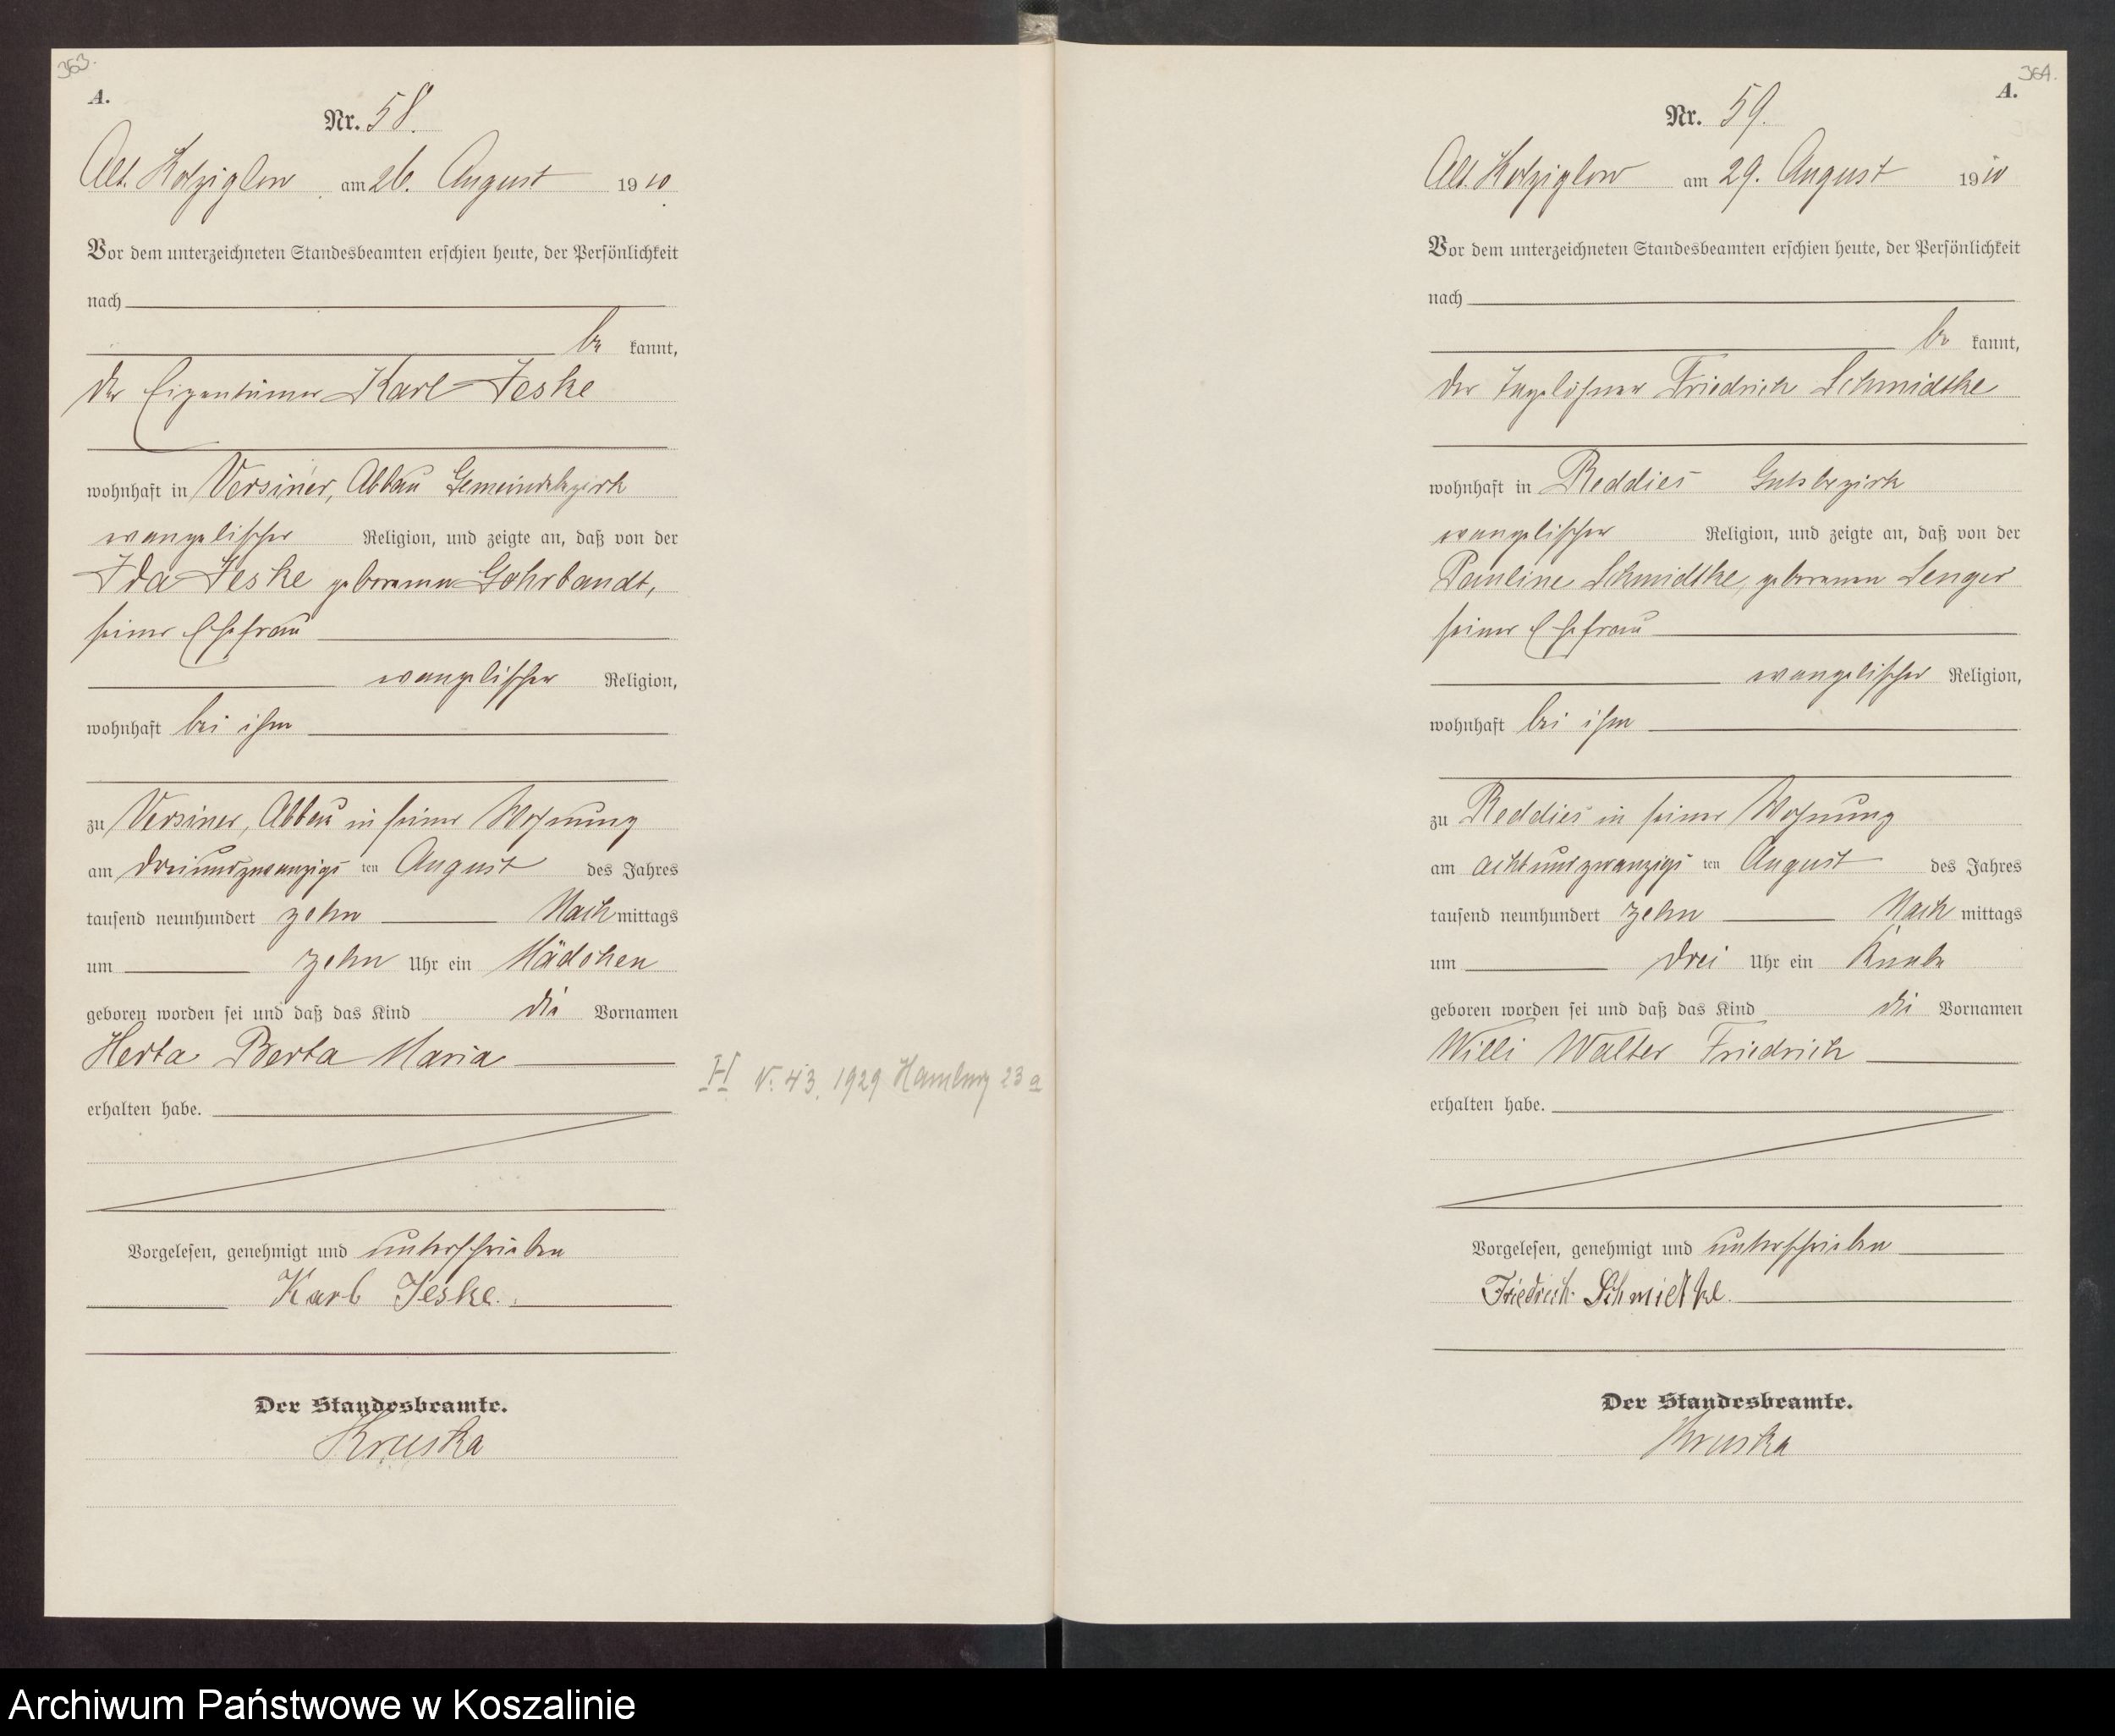 363.
A.
Nr. 58.
Alt. Kolziglow am 26. August 1910.
Vor dem unterzeichneten Standesbeamten erschien heute, der Persönlichkeit
nach
be kannt,
der Eigentümer Karl Jeske
wohnhaft in Versiner, Abbau Gemeindebezirk
evangelischer Religion, und zeigte an, daß von der
Ida Jeske geborenen Gohrbandt,
seiner Ehefrau
evangelischer Religion,
wohnhaft bei ihm
zu Versiner, Abbau in seiner Wohnung
am dreiundzwanzigs ten August des Jahres
tausend neunhundert zehn Nach mittags
um zehn Uhr ein Mädchen
geboren worden sei und daß das Kind die Vornamen
Herta Berta Maria
erhalten habe.
Vorgelesen, genehmigt und unterschrieben
Karl Jeske.
Der Standesbeamte.
Kruska
H Nr. 43. 1929 Hamburg 23 a
364.
A.
Nr. 59.
Alt. Kolziglow am 29. August 1910
Vor dem unterzeichneten Standesbeamten erschien heute, der Persönlichkeit
nach
be kannt,
der Tagelöhner Friedrich Schmidtke
wohnhaft in Reddies Gutsbezirk
evangelischer Religion, und zeigte an, daß von der
Pauline Schmidtke, geborenen Lenger
seiner Ehefrau
evangelischer Religion,
wohnhaft bei ihm
zu Reddies in seiner Wohnung
am achtundzwanzigs ten August des Jahres
tausend neunhundert zehn Nach mittags
um drei Uhr ein Knabe
geboren worden sei und daß das Kind die Vornamen
Willi Walter Friedrich
erhalten habe.
Vorgelesen, genehmigt und unterschrieben
Friedrich Schmidtke.
Der Standesbeamte.
Kruska
Archiwum Państwowe w Koszalinie